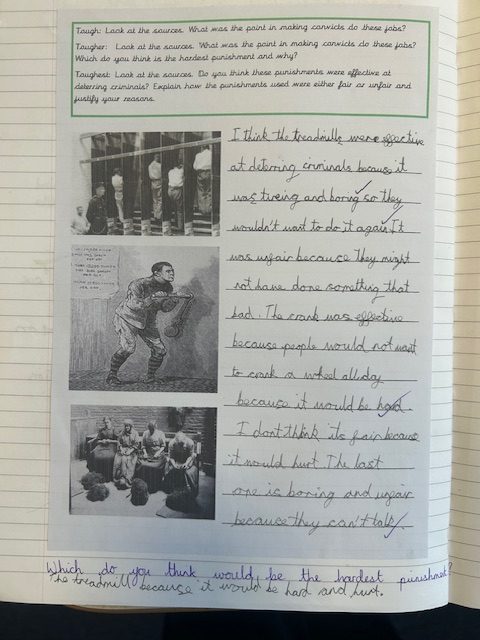 Tough: Look at the sources. What was the point in making convicts do these jobs?
Tougher: Look at the sources. What was the point in making convicts do these jobs?
Which do you think is the hardest punishment and why?
Toughest: Look at the sources. Do you think these punishments were effective at
deterring criminals? Explain how the punishments used were either fair or unfair and
justify your reasons.
I think the treadmills were effective
at deterring criminals because it
was tireing and boring so they
wouldn't want to do it again. It
was unfair because they might
not have done something that
bad. The crank was effective
because people would not want
to crank a wheel all day
because it would be hard.
I dont think its fair because
it would hurt. The last
one is boring and unfair
because they can't talk.
Which do you think would be the hardest punishment?
The treadmill because it would be hard and hurt.